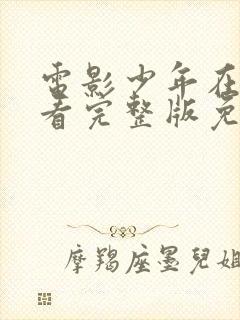 电影少年在
看完整版免
摩羯座墨兒姐